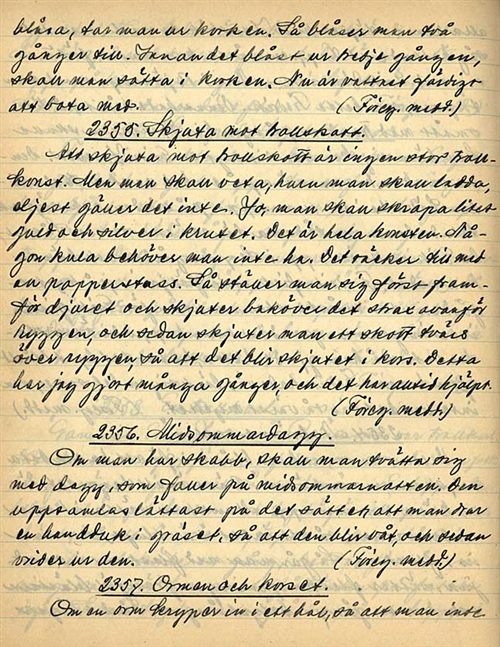 blåsa, tar man ur korken. Så blåser man två
gånger till. Innan det blåst ur tredje gången,
skall man sätta i korken. Nu är vattnet färdigt
att bota med. (Föreg. medd.)
2355. Skjuta mot trollskott.
Att skjuta mot trollskott är ingen stor troll-
konst. Men man skall veta, huru man skall ladda,
eljest gäller det inte. Jo, man skall skrapa litet
guld och silver i krutet. Det är hela konsten. Nå-
gon kula behöver man inte ha. Det räcker till med
en papperstuss. Så ställer man sig först fram-
för djuret och skjuter baköver det strax ovanför
ryggen, och sedan skjuter man ett skott tvärs
över ryggen, så att det blir skjutet i kors. Detta
har jag gjort många gånger, och det har alltid hjälpt.
(Föreg. medd.)
2356. Midsommardagg.
Om man har skabb, skall man tvätta sig
med dagg, som faller på midsommarnatten. Den
uppsamlas lättast på det sättet att man drar
en handduk i gräset, så att den blir våt, och sedan
vrider ur den. (Föreg. medd.)
2357. Ormen och korset.
Om en orm kryper in i ett hål, så att man inte